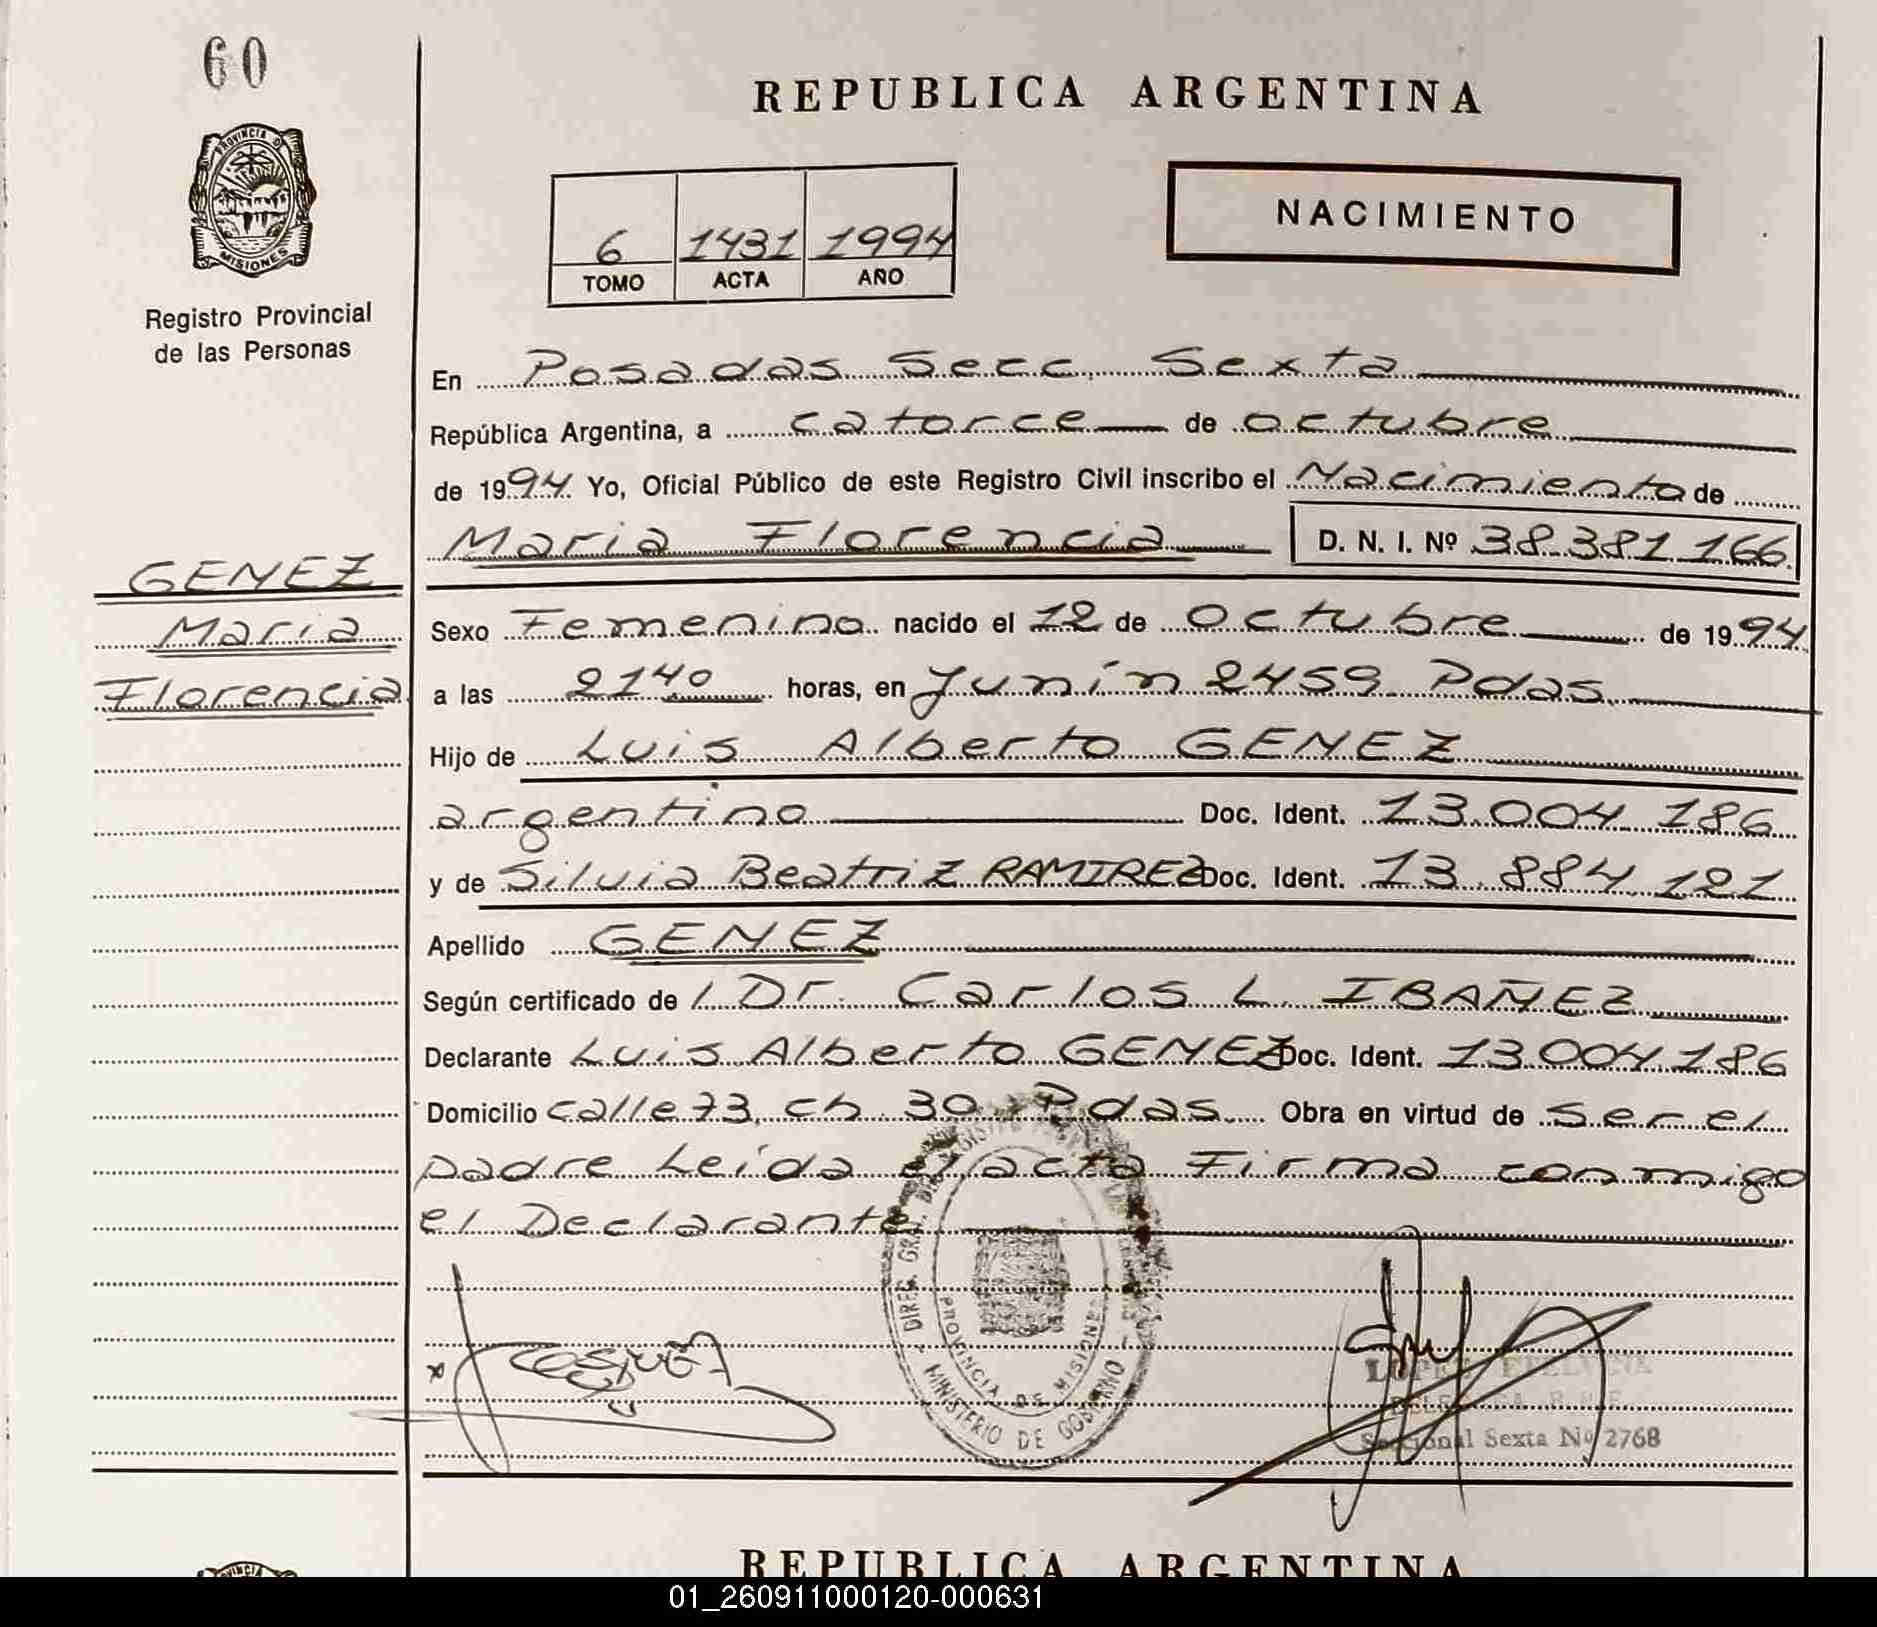 60
REPUBLICA ARGENTINA
PROVINCIA DE
MISIONES
Registro Provincial
de las Personas
6 1431 1994
TOMO ACTA AÑO
NACIMIENTO
En Posadas Secc. Sexta
República Argentina, a catorce de octubre
de 1994 Yo, Oficial Público de este Registro Civil inscribo el Nacimiento de
Maria Florencia D. N. I. Nº 38.381.166
GENEZ
Maria
Florencia
Sexo Femenino nacido el 12 de Octubre de 1994
a las 21 40 horas, en Junín 2459 Pdas.
Hijo de Luis Alberto GENEZ
argentino Doc. Ident. 13.004.186
y de Silvia Beatriz RAMIREZ Doc. Ident. 13.884.121
Apellido GENEZ
Según certificado de / Dr. Carlos L. IBAÑEZ
Declarante Luis Alberto GENEZ Doc. Ident. 13.004.186
Domicilio calle 73, ch 30 Pdas. Obra en virtud de ser el
padre Leída el acta Firma conmigo
el Declarante
DIREC. GRAL. DEL REGISTRO
PROVINCIA DE MISIONES
MINISTERIO DE GOBIERNO
LOPEZ
Seccional Sexta Nº 2768
REPUBLICA ARGENTINA
01_260911000120-000631